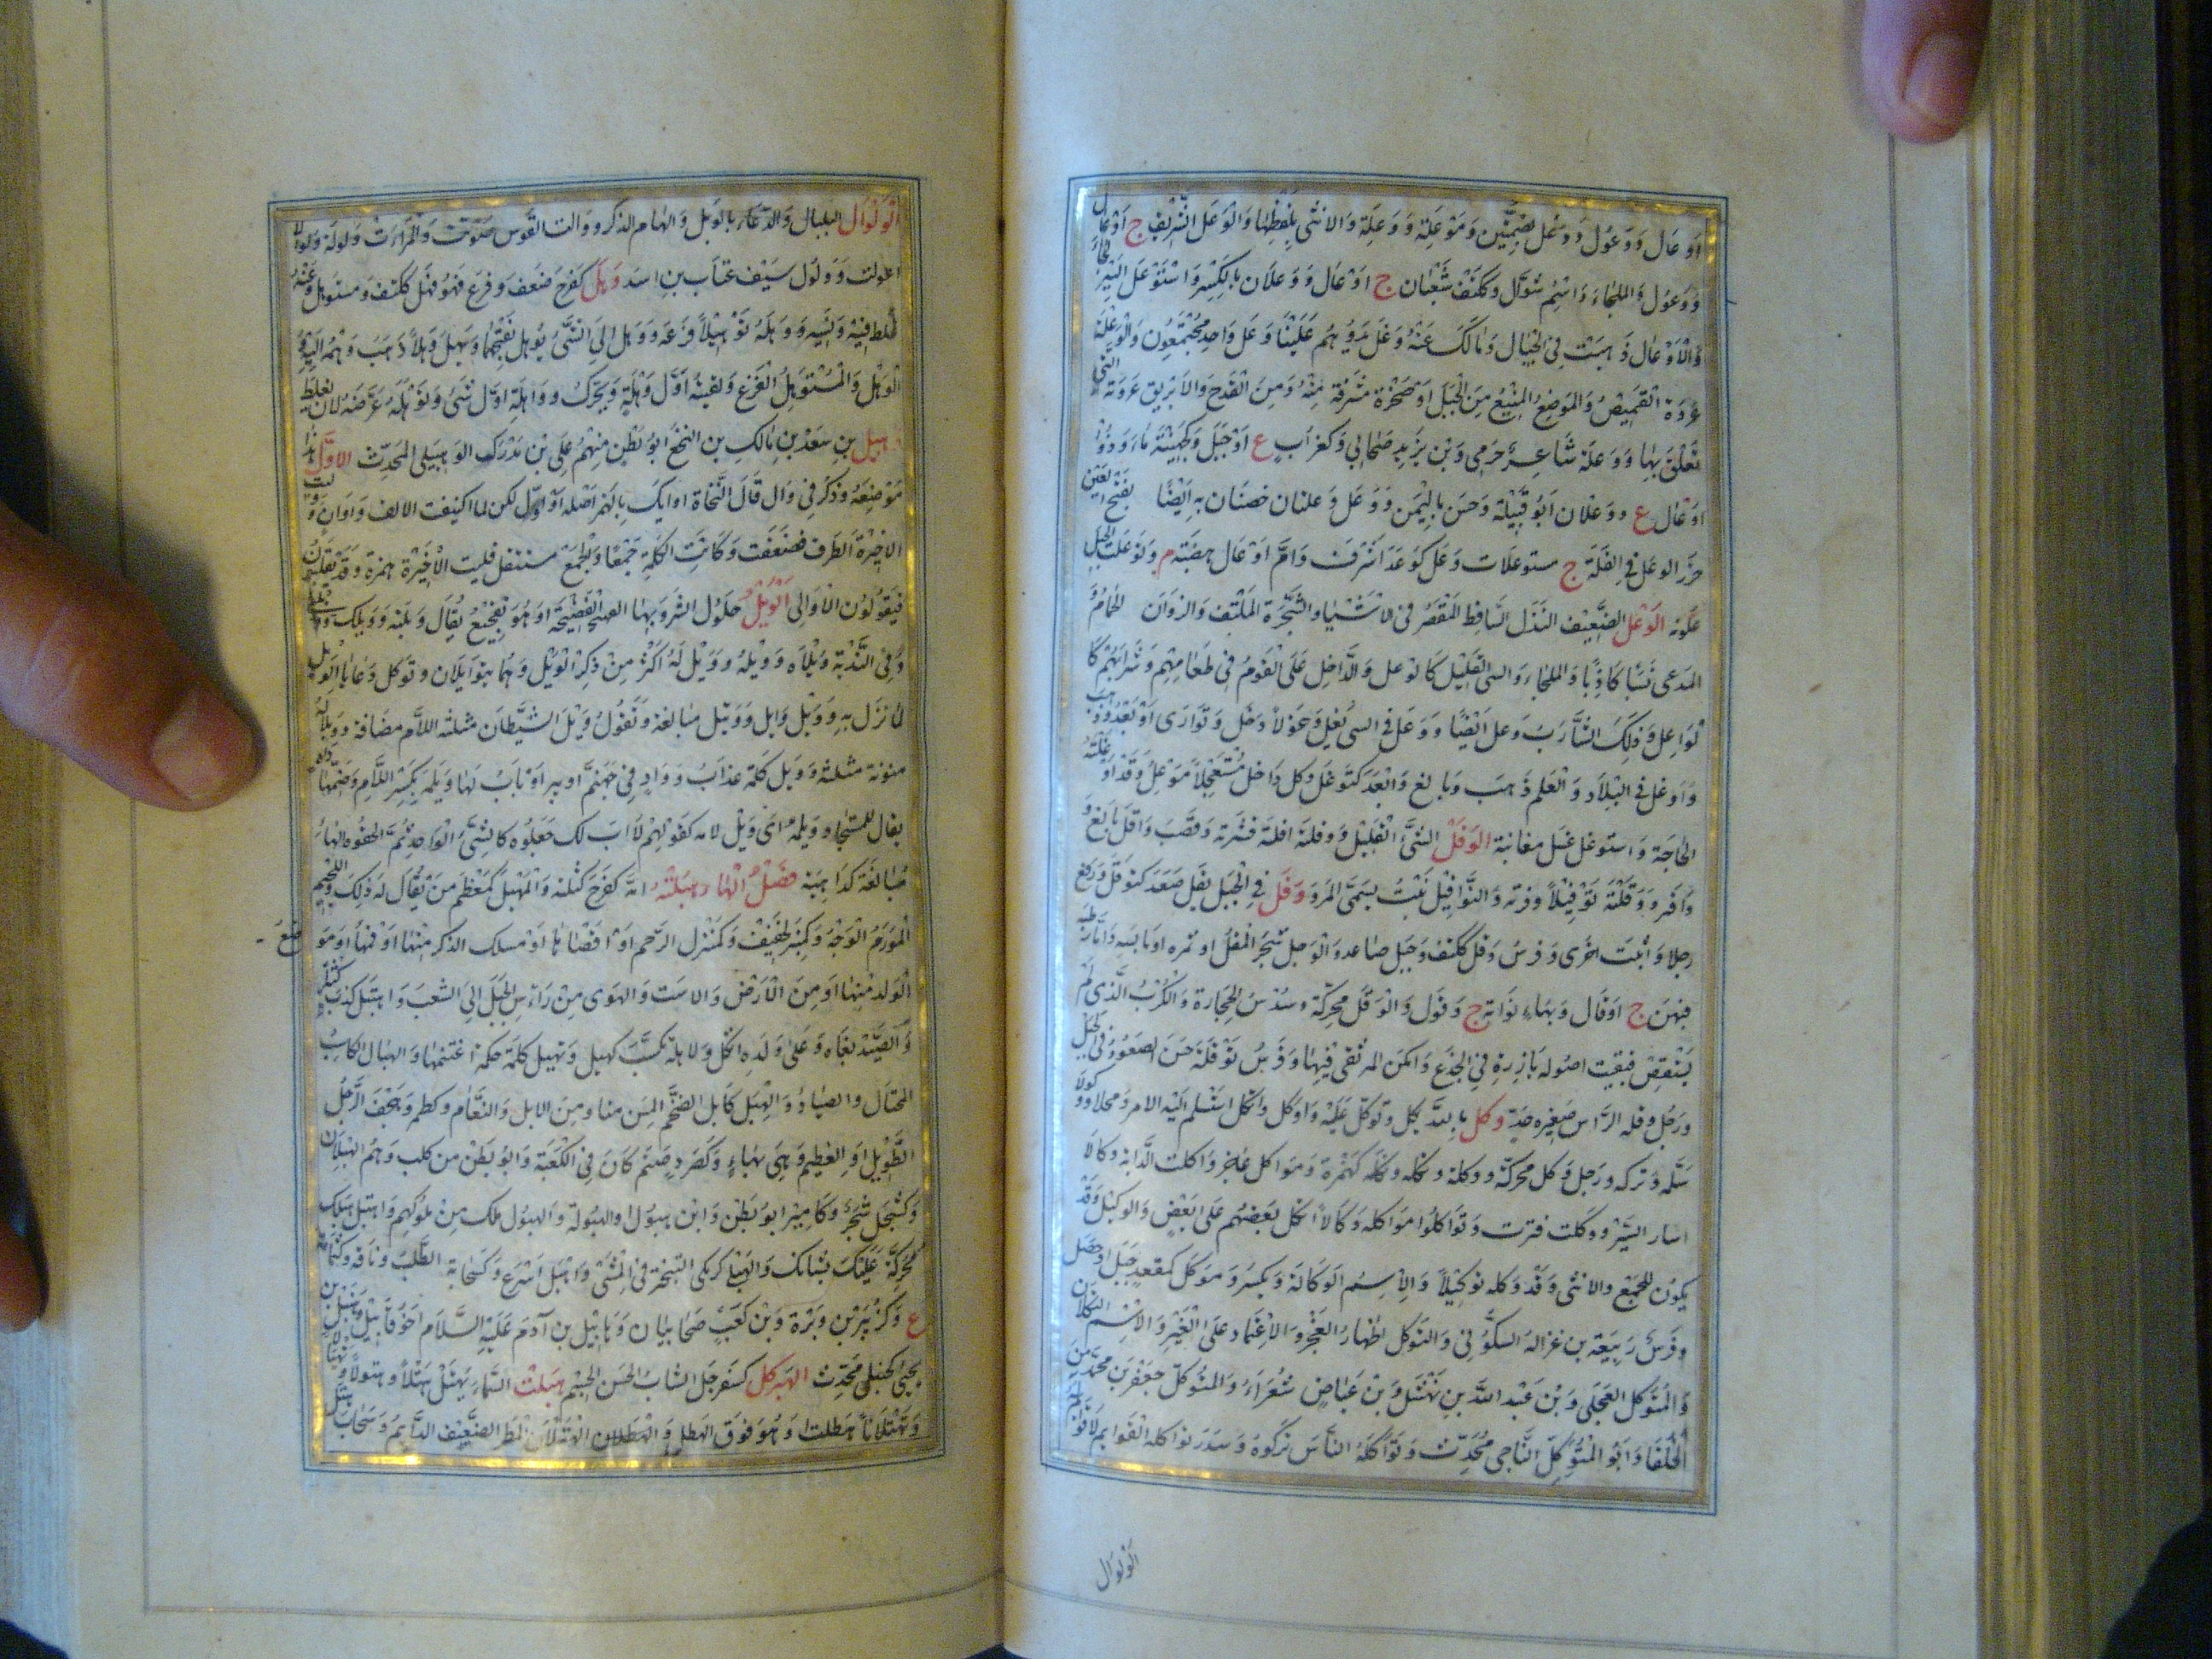 اوعال ووعول ووعل بضمتين وموعلة ووعلة والانثى بلفظها والوعل الشريف ج اوعال
ووعول والملجاء واسم شوال وككتف شعبان ج اوعال ووعلان بالكسر واستوعل اليه لجاء
والاوعال ذهبت في الجبال ومالك عنه وعل بد وهم علينا وعل واحد مجتمعون والوعلة
عروة القميص والموضع المنيع من الجبل او صخرة مشرفة منه ومن القدح والابريق عروته التي
تعلق بها ووعلة شاعر جرمي وبن يزيد صحابي وكغراب ع او جبل وكجهينة ماء وذو
اوعال ع ووعلان ابو قبيلة وحسن باليمن ووعل وعلتان حصنان به ايضا بفتح العين
الوعل في القلة ج مستوعلات وعل كوعد اشرف وام اوعال هضبة م وتوعلت الجبل
علوته الوغل الضعيف النذل الساقط المقصر في الاشياء والشجرة الملتف والزوان
المدعي نسبا كاذبا والملجاء والسئ القليل كالوغل والداخل على القوم في طعامهم وشرابهم
كالواغل وذلك الشراب وغل ايضا ووغل في السئ يغل وغولا دخل وتوارى او بعد وذهب
واوغل في البلاد والعلم ذهب وبالغ وابعد كتوغل وكل داخل مستعجلا موغل وقد اوغلته
الحاجة واستوغل غسل مغابنه الوفل الشئ القليل ووفلته افلة قشرته وقصب وافل بالغ
وافر ووفلته توفيلا وفرته والنوافيل نبت يسمى المرو وقل في الجبل يقل صعد كتوقل ورفع
رجلا واثبت اخرى وفرس وقل ككتف وجبل صاعد والوقل شجر المقل او ثمره او يابسه
ج اوقال وبهاء نواته ج وقول والوقل محركة وسدس الحجارة والكرب الذي لم
ينقص فبقيت اصوله بارزة في الجذع وامكن المرتقى فيها وفرس توقلة حسن الصعود في الجبل
ورجل وقله الراس صغيره جدا وكل بالله يكل وتوكل عليه واوكل واتكل استسلم اليه الامر وكلا ووكولا
سلمه وتركه ورجل وكل محركة ووكلة وتكلة كهمزة ومواكل عاجز واكلت الدابة وكالا
اسار السير ووكلت فترت وتواكلوا مواكله وكالا اتكل بعضهم على بعض والوكيل وقد
يكون للجمع والانثى وقد وكله توكيلا والاسم الوكالة ويكسر وموكل كمقعد جبل او حصل
وفرس ربيعة بن غزالة السكوني والتوكل اظهار العجز والاعتماد على الغير والاسم التكلان
والمتوكل العجلي وبن عبد الله بن نهشل وبن عياض شعراء والمتوكل جعفر بن محمد من
الخلفا وابو المتوكل الناجي محدث وتواكله الناس تركوه
الولوال
الولوال البلبال والدعاء بالويل والهام الذكر ووالت القوس صوتت والمراءة ولولة ولوالا
اعولت وولول سيف عتاب بن اسد وهل كفرح ضعف وفزع فهو وهل ككتف ومستوهل وعنه
غلط فيه ونسيه ووهله توهيلا فزعه ووهل الى الشئ يوهل بفتحهما ويهل وهلا ذهب وهمه اليه
الوهل والمستوهل الفزع ولقيته اول وهلة ويحرك وواهلة اول شئ وتوهله عرضه لان يغلط
وهبيل بن سعد بن مالك بن النخع ابو بطن منهم علي بن مدرك الوهبيلي المحدث الاول هذا
موضعه وذكر في وال قال النحاة اوايل بالهمز اصله اواول لكن لما اكتنفت الالف واوان
الاخيرة الطرف فضعفت وكانت الكلمة جمعا والجمع مستثقل قلبت الاخيرة همزة وقد يقلبون
فيقولون الاوالي الويل حلول الشر وبهاء الفضيحة او هو تفجيع يقال ويلته وويلك
وفي الندبة ويلاه وويله وويل له اكثر من ذكر الويل وهما يتوايلان وتوكل دعا بالويل
لما نزل به وويل وايل وويل مبالغة وتقول ويل الشيطان مثلثة اللام مضافة وويلا له
منونة مثلثة وويل كلمة عذاب وواد في جهنم او بير او باب لها ويلمه بكسر اللام وضمها
يقال للمستجاد ويلمه اى ويل لامه كقولهم لا اب لك جعلوه كالشئ الواحد ثم الحقوه الهاء
مبالغة كداهية فصل الهاء هبلته امه كفرح ثكلته والمهبل كمعظم من يقال له ذلك واللحيم
المورم الوجه وكمنبر الخفيف وكمنزل الرحم او اقصاها او مسلك الذكر منها او فمها او موضع
الولد منها او من الارض والاست والهوى من راءس الجبل الى الشعب واهتبل كذب
والصيد بغاه وعلى ولده اتكل ولاهله تكسب كهبل وتهبل كلمة حكمة اغتنمها والهبال الكاسب
المحتال والصياد والهبل كابل الضخم المسن منا ومن الابل والنعام وكطمر وهجف الرجل
الطويل او العظيم وهي بهاء وكصرد صنم كان في الكعبة وابو بطن من كلب وهم الهبلات
وكسجل شجر وكامير ابو بطن وابن هبول والهبولة والهبول ملك من ملوكهم واهتبل هبلك
محركة عليك بشانك والهبلى كزمكى التبختر في المشى واهبل اسرع وكسحابة الطلب وناقة وكثمامة
ع وكزبير بن وبرة وبن كعب صحابيان وهابيل بن آدم عليه السلام اخو قابيل وهنبل بن
يحيى كحنبل محدث الهبركل كسفرجل الشاب الحسن الجسم هتلت السماء تهتل هتلا وهتولا وتهتالا
وهتلانا هطلت او هو فوق الهطل والهطلان الهتلان المطر الضعيف الدايم وسحاب هتل